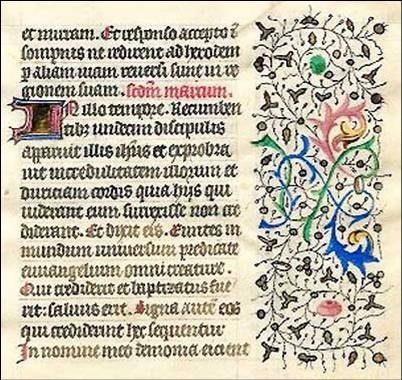 et mirram. Et responso accepto i
sompnis ne redirent ad herodem
p aliam uiam reuersi sunt in re
gionem suam. scdm marcum.
In illo tempore. Recumben
tibus undecim discipulis
apparuit illis ihesus et exprobra
uit incredulitatem illorum et
duriciam cordis quia hijs qui
uiderant eum surrexisse non cre
diderant. Et dixit eis. Euntes in
mundum uniuersum predicate
euuangelium omni creature.
Qui crediderit et baptizatus fue
rit: saluus erit. Signa aute eos
qui crediderint hec sequentur
In nomine meo demonia eicient